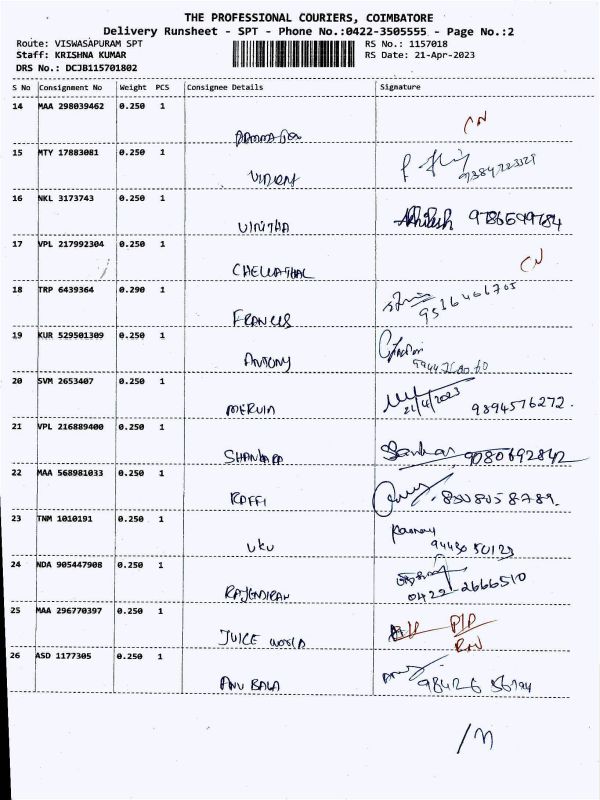 THE PROFESSIONAL COURIERS, COIMBATORE
Delivery Runsheet - SPT - Phone No.:0422-3505555 - Page No.:2
Route: VISWASAPURAM SPT
RS No.: 1157018
Staff: KRISHNA KUMAR
RS Date: 21-Apr-2023
DRS No.: DCJB115701802
S No Consignment No Weight PCS Consignee Details Signature
14 MAA 298039462 0.250 1
CN
15 MTY 17883081 0.250 1
16 NKL 3173743 0.250 1
VINITHA 9786599784
17 VPL 217992304 0.250 1
CHELLATHAL CN
18 TRP 6439364 0.290 1
FRANCIS 9516466705
19 KUR 529501309 0.250 1
ANTONY
20 SVM 2653407 0.250 1
MERVIN 21/4/2023 9894576272.
21 VPL 216889400 0.250 1
SHANKARA Sankar 9080692842
22 MAA 568981033 0.250 1
RAFFI
23 TNM 1010191 0.250 1
UKU 9443050123
24 NDA 905447908 0.250 1
RAJENDIRAN 0422-2666510
25 MAA 296770397 0.250 1
JUICE WORLD
26 ASD 1177305 0.250 1
ANU BALA 98426 56794